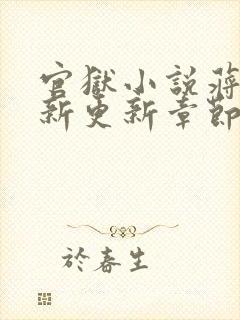 官獄小說蔣
新更新章節
於春生